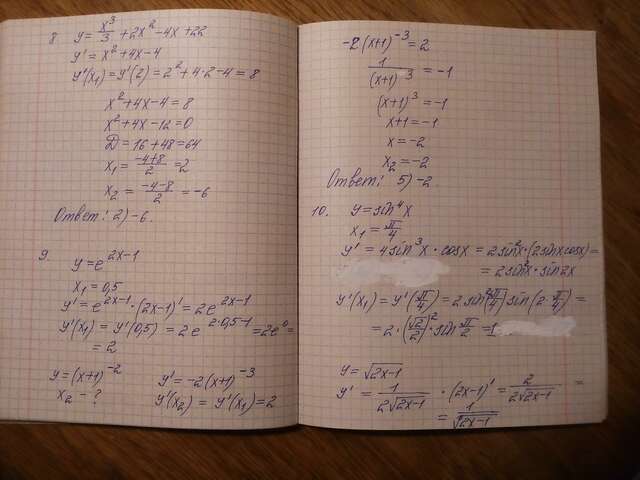 8. y = x³/3 + 2x² - 4x + 22
y' = x² + 4x - 4
y'(x₁) = y'(2) = 2² + 4·2 - 4 = 8
x² + 4x - 4 = 8
x² + 4x - 12 = 0
D = 16 + 48 = 64
x₁ = (-4+8)/2 = 2
x₂ = (-4-8)/2 = -6
Ответ: 2) -6.
9.
y = e^(2x-1)
x₁ = 0,5
y' = e^(2x-1) · (2x-1)' = 2e^(2x-1)
y'(x₁) = y'(0,5) = 2e^(2·0,5-1) = 2e⁰ =
= 2
y = (x+1)⁻² y' = -2(x+1)⁻³
x₂ - ? y'(x₂) = y'(x₁) = 2
-2(x+1)⁻³ = 2
1/(x+1)³ = -1
(x+1)³ = -1
x+1 = -1
x = -2
x₂ = -2
Ответ: 5) -2.
10. y = sin⁴x
x₁ = π/4
y' = 4sin³x · cosx = 2sin²x·(2sinxcosx) =
= 2sin²x · sin2x
y'(x₁) = y'(π/4) = 2sin²(π/4) sin(2·π/4) =
= 2·(√2/2)² · sin π/2 = 1
y = √(2x-1)
y' = 1/(2√(2x-1)) · (2x-1)' = 2/(2√(2x-1)) =
= 1/√(2x-1)